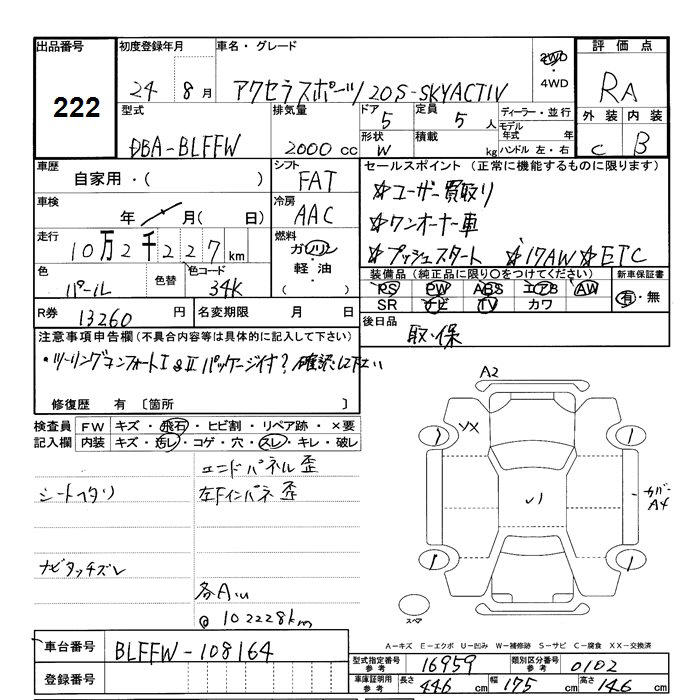 出品番号 初度登録年月 車名・グレード 評価点
222 24年 8月 アクセラスポーツ/20S-SKYACTIV 2WD・4WD RA
型式 排気量 ドア 5 定員 5人 ディーラー・並行 外装 内装
DBA-BLFFW 2000cc 形状 W 積載 kg モデル年式 年 ハンドル 左・右 C B
車歴 自家用・( ) シフト FAT セールスポイント(正常に機能するものに限ります)
☆ユーザー買取り
車検 年 月( 日) 冷房 AAC ☆ワンオーナー車
走行 10万2千227km 燃料 ガソリン・軽油( ) ☆プッシュスタート ☆17AW ☆ETC
色 パール 色替 色コード 34K 装備品(純正品に限り○をつけてください) 新車保証書
PS PW ABS エアB AW 有・無
SR ナビ TV カワ
R券 13260円 名変期限 月 日 後日品 取・保
注意事項申告欄(不具合内容等は具体的に記入して下さい)
・ツーリングコンフォートI&IIパッケージ付?確認して下さい
修復歴 有〔箇所 〕
検査員記入欄 FW キズ・飛石・ヒビ割・リペア跡・×要
内装 キズ・汚レ・コゲ・穴・スレ・キレ・破レ
エンドパネル歪
シートヘタリ 左Fインパネ歪
ナビタッチズレ
各A.u
@102228km
A2
XX
カバーA4
スペア
A-キズ E-エクボ U-凹み W-補修跡 S-サビ C-腐食 XX-交換済
車台番号 BLFFW-108164
型式指定番号参考 16959 類別区分番号参考 0102
登録番号
車庫証明用参考 長さ 446cm 幅 175cm 高さ 146cm